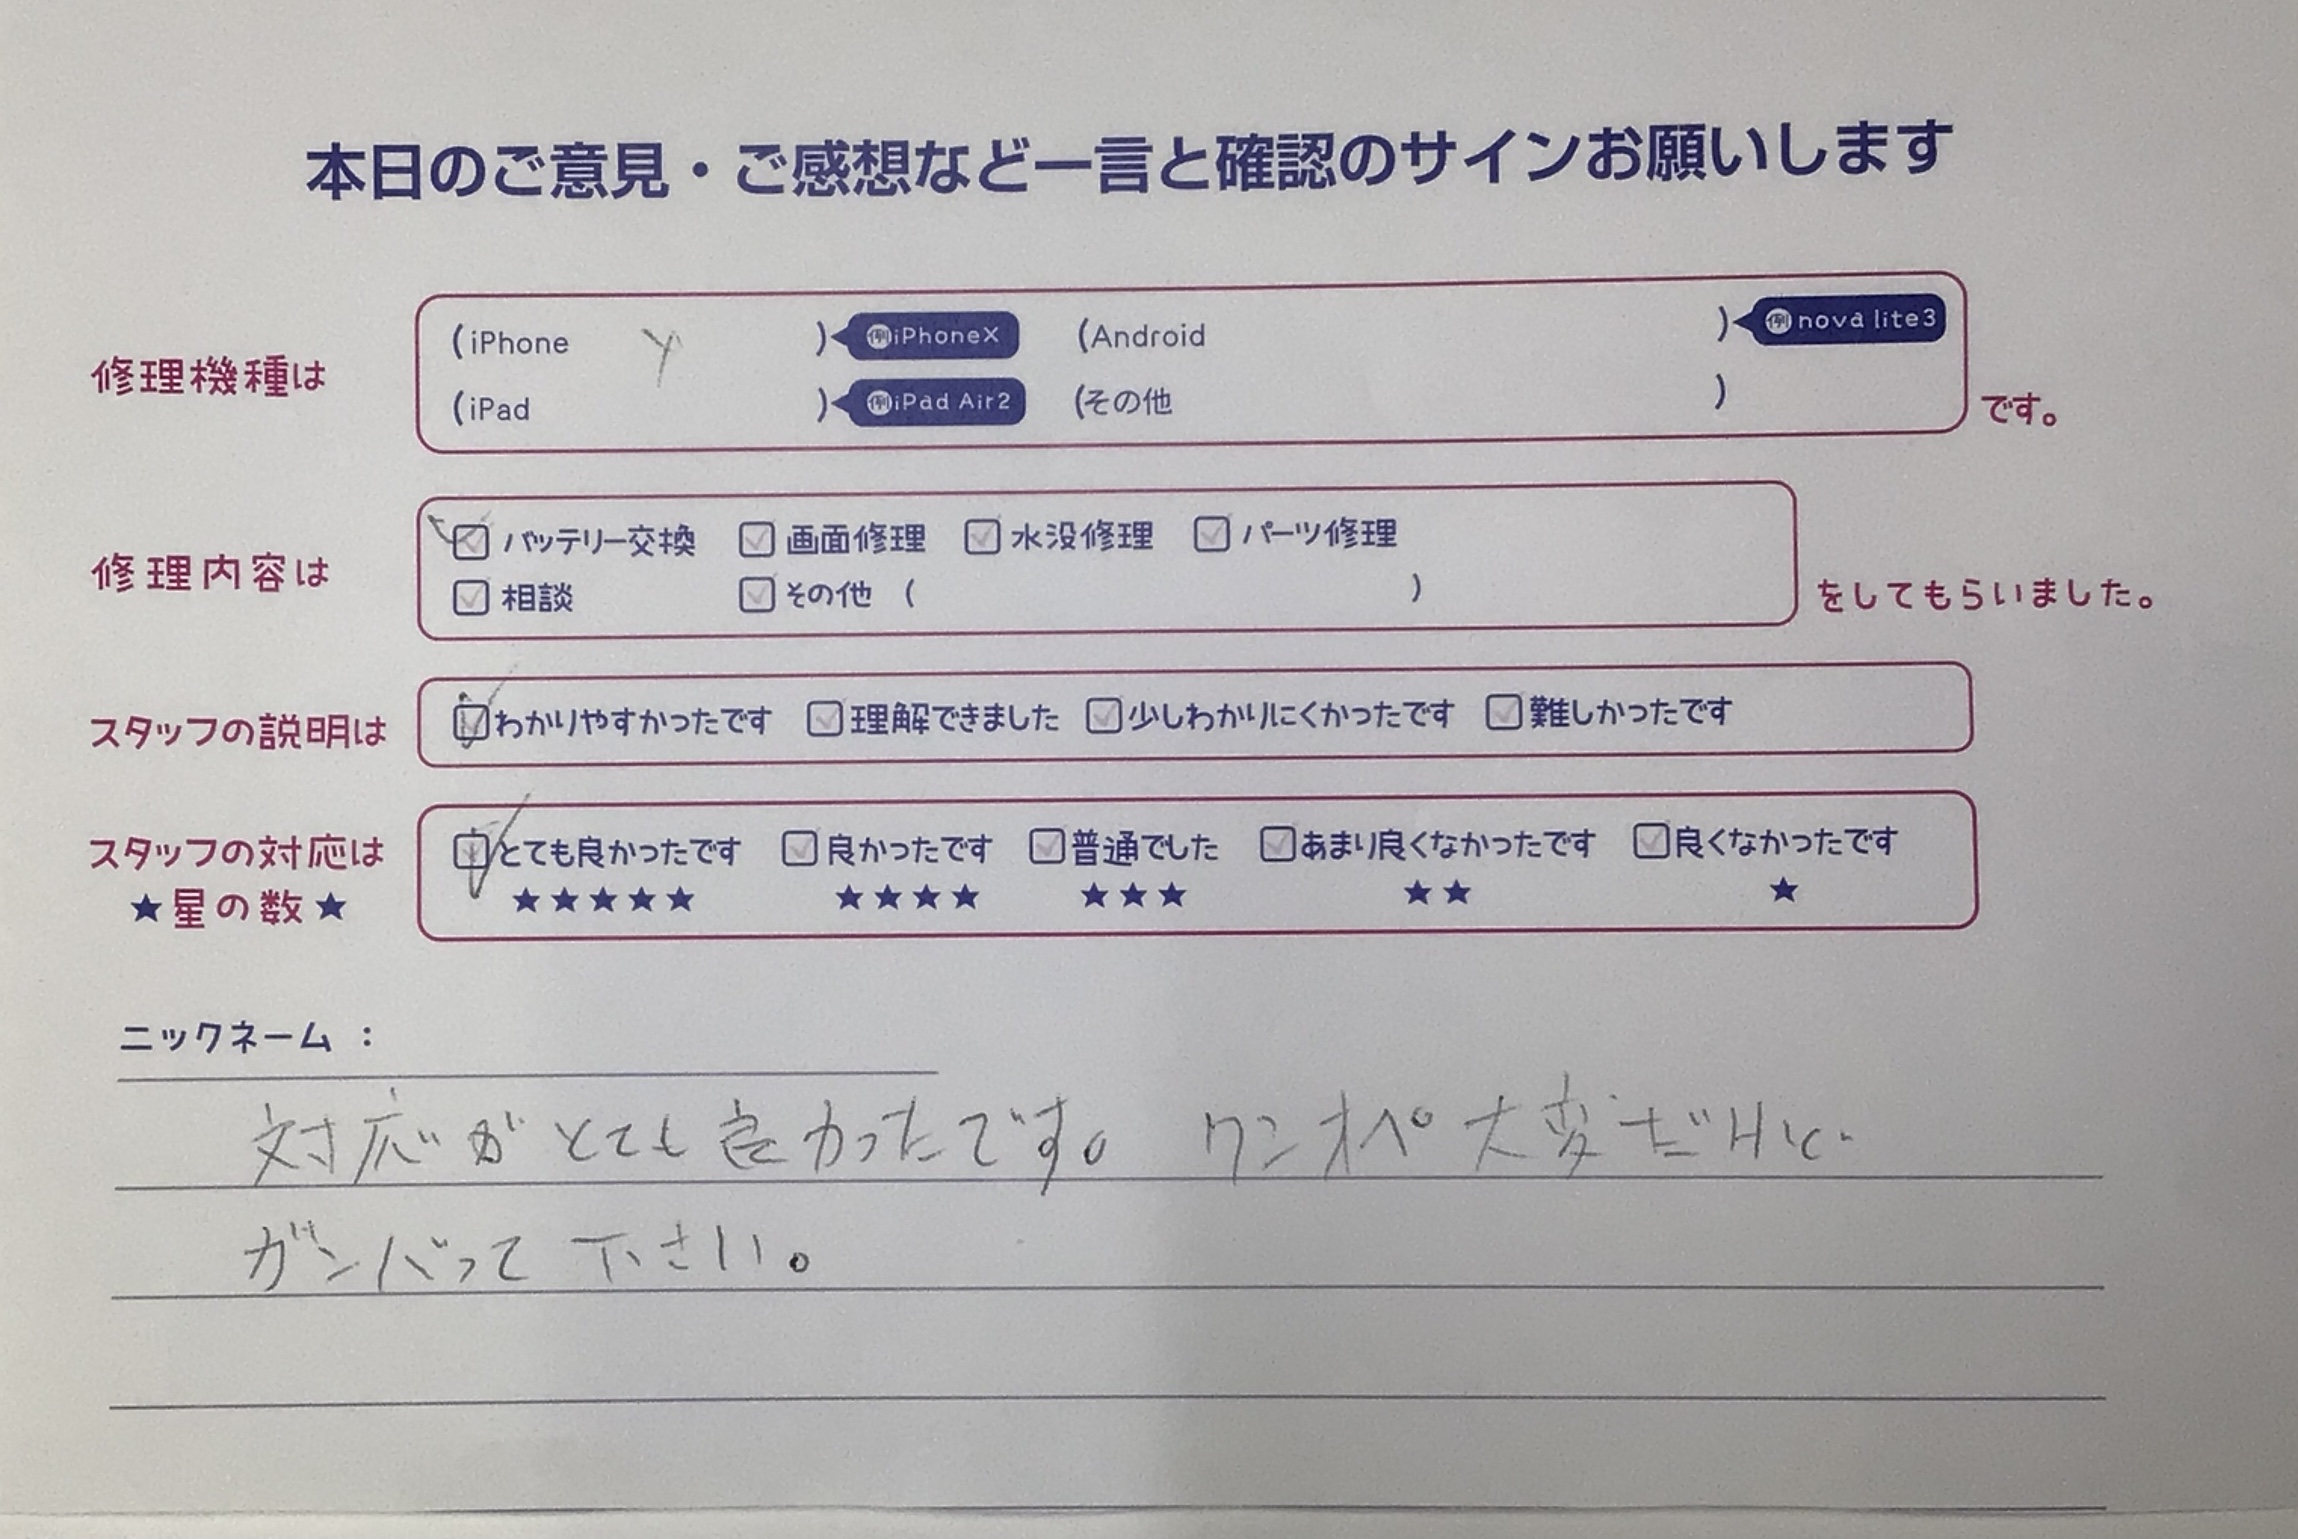 本日のご意見・ご感想など一言と確認のサインお願いします
修理機種は
(iPhone ) 例iPhoneX (Android ) 例nova lite3
(iPad ) 例iPad Air2 (その他 )
です。
修理内容は
バッテリー交換 画面修理 水没修理 パーツ修理
相談 その他 ( )
をしてもらいました。
スタッフの説明は
わかりやすかったです 理解できました 少しわかりにくかったです 難しかったです
スタッフの対応は
★星の数★
とても良かったです 良かったです 普通でした あまり良くなかったです 良くなかったです
★★★★★ ★★★★ ★★★ ★★ ★
ニックネーム：
対応がとても良かったです。 ワンオペ大変だけど
ガンバって下さい。